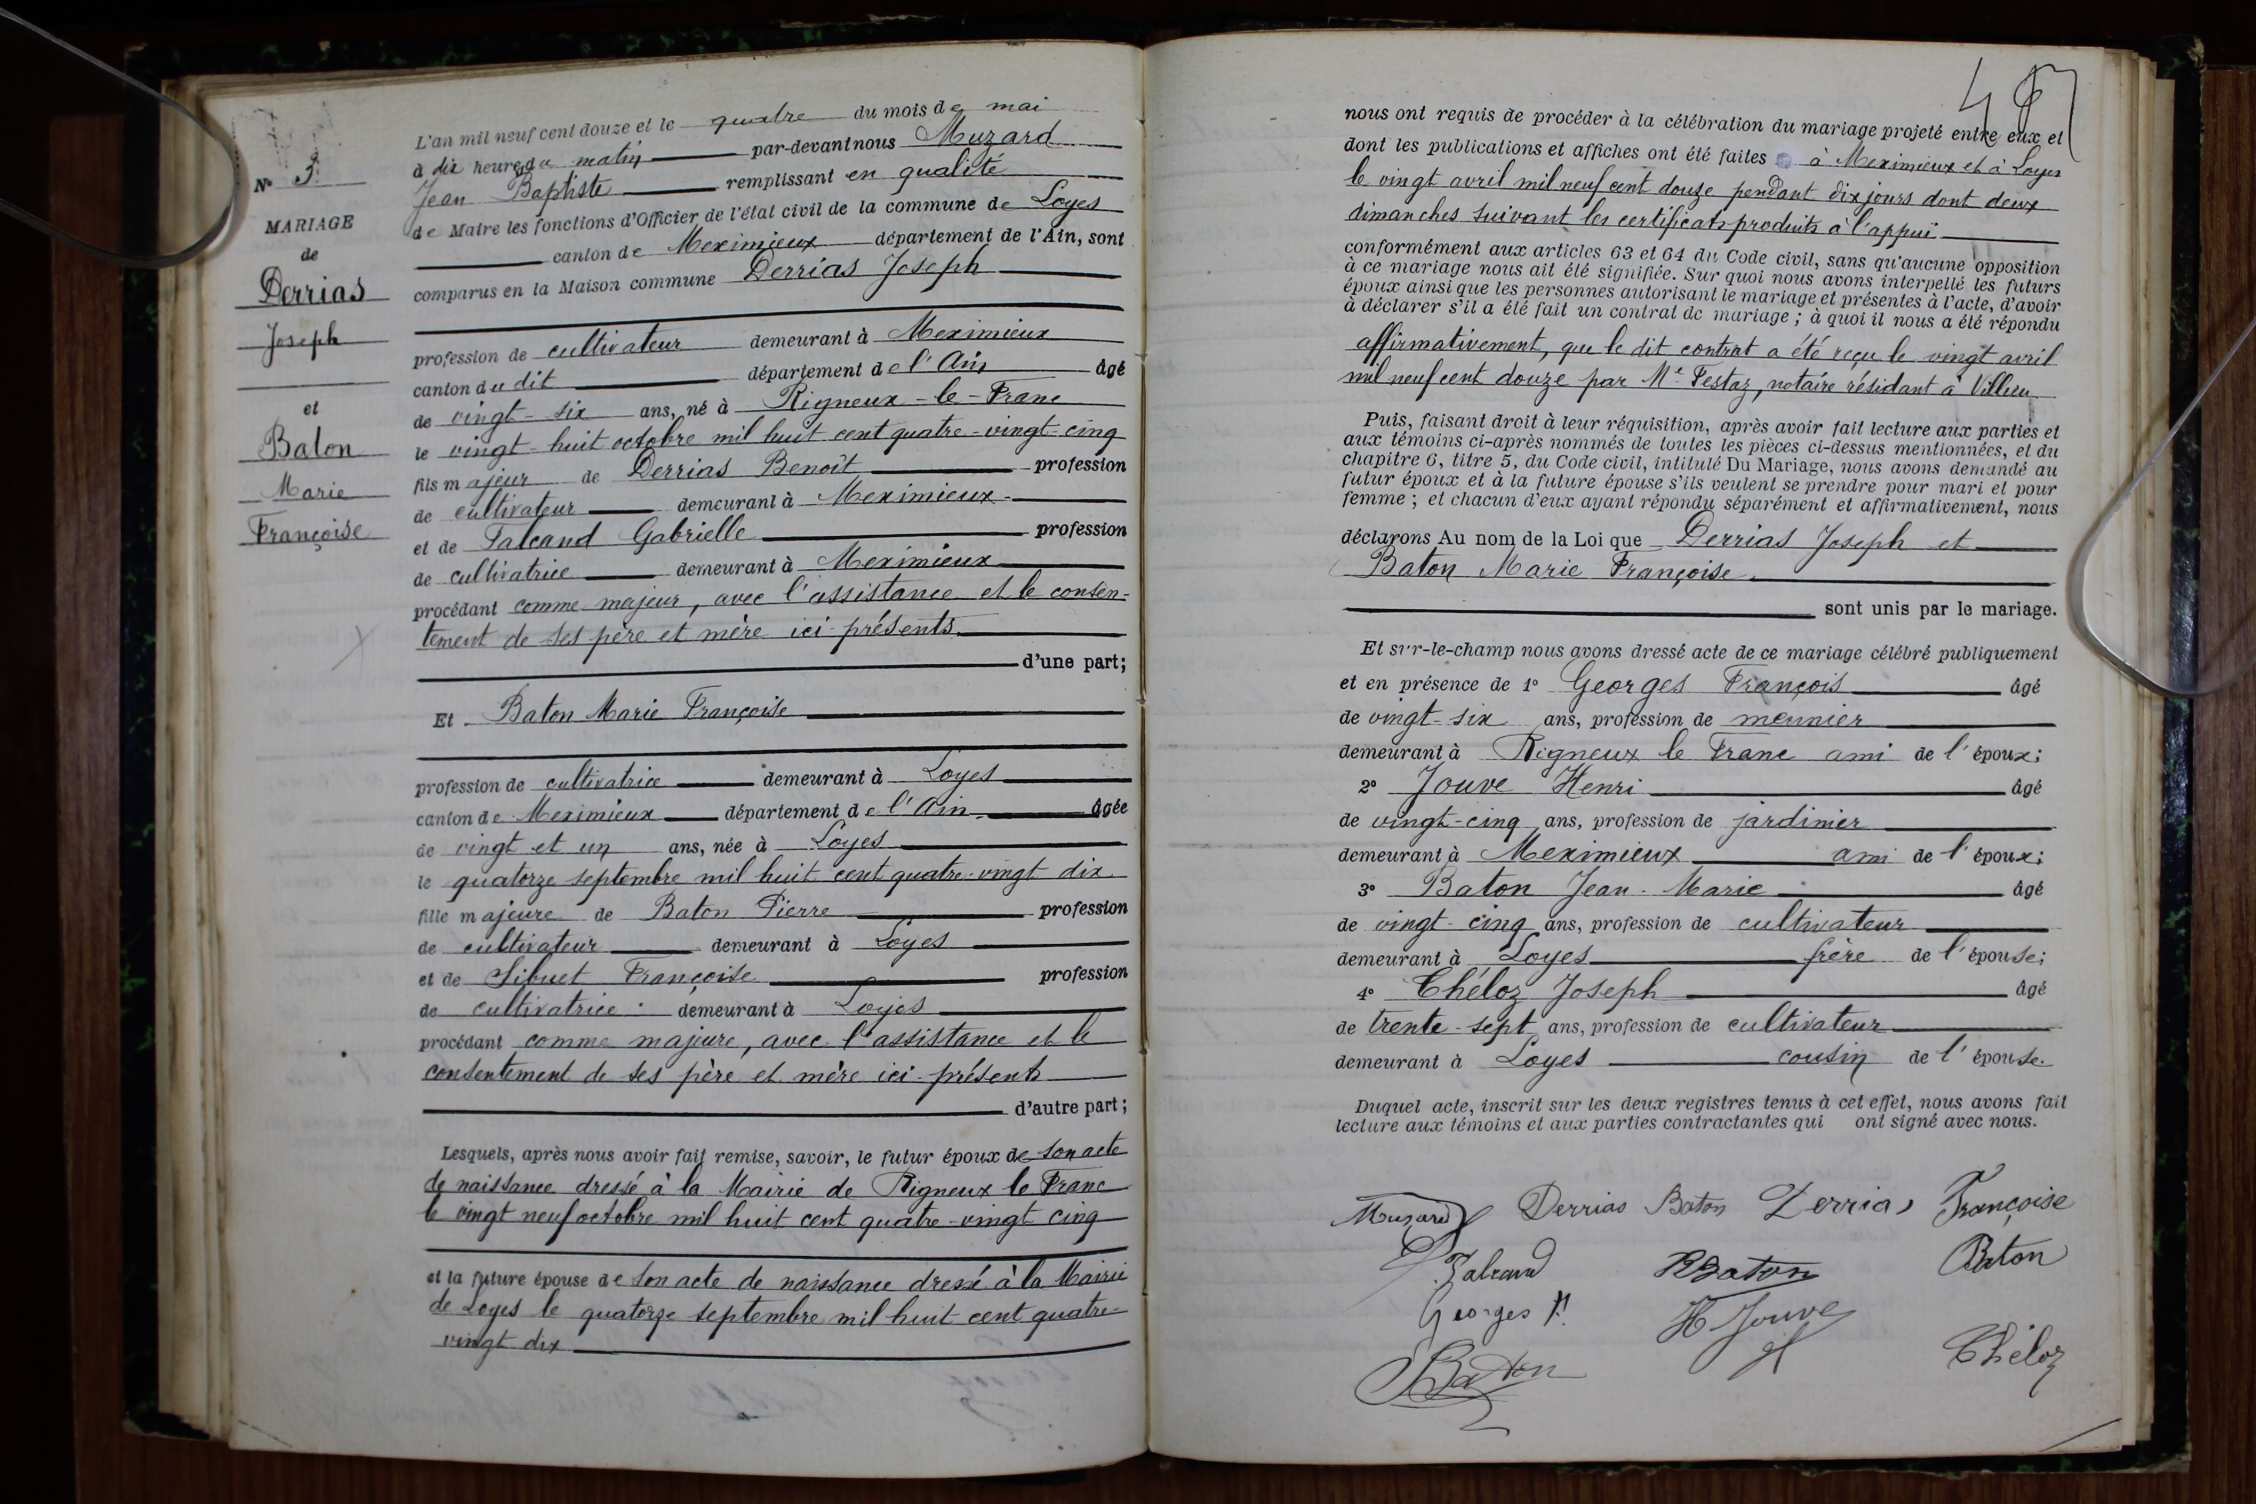 N° 3.
MARIAGE
de
Derrias
Joseph
et
Baton
Marie
Françoise
L'an mil neuf cent douze et le quatre du mois de mai
à dix heures du matin par-devant nous Muzard
Jean Baptiste remplissant en qualité
de Maire les fonctions d'Officier de l'état civil de la commune de Loyes
canton de Meximieux département de l'Ain, sont
comparus en la Maison commune Derrias Joseph
profession de cultivateur demeurant à Meximieux
canton du dit département de l'Ain âgé
de vingt-six ans, né à Rigneux-le-Franc
le vingt-huit octobre mil huit cent quatre-vingt-cinq
fils majeur de Derrias Benoît profession
de cultivateur demeurant à Meximieux
et de Falcand Gabrielle profession
de cultivatrice demeurant à Meximieux
procédant comme majeur, avec l'assistance et le consen-
tement de ses père et mère ici présents
d'une part;
Et Baton Marie Françoise
profession de cultivatrice demeurant à Loyes
canton de Meximieux département de l'Ain âgée
de vingt et un ans, née à Loyes
le quatorze septembre mil huit cent quatre-vingt dix
fille majeure de Baton Pierre profession
de cultivateur demeurant à Loyes
et de Sibuet Françoise profession
de cultivatrice demeurant à Loyes
procédant comme majeure, avec l'assistance et le
consentement de ses père et mère ici présents
d'autre part;
Lesquels, après nous avoir fait remise, savoir, le futur époux de son acte
de naissance dressé à la Mairie de Rigneux le Franc
le vingt neuf octobre mil huit cent quatre-vingt cinq
et la future épouse de son acte de naissance dressé à la Mairie
de Loyes le quatorze septembre mil huit cent quatre-
vingt dix
nous ont requis de procéder à la célébration du mariage projeté entre eux et
dont les publications et affiches ont été faites à Meximieux et à Loyes
le vingt avril mil neuf cent douze pendant dix jours dont deux
dimanches suivant les certificats produits à l'appui
conformément aux articles 63 et 64 du Code civil, sans qu'aucune opposition
à ce mariage nous ait été signifiée. Sur quoi nous avons interpellé les futurs
époux ainsi que les personnes autorisant le mariage et présentes à l'acte, d'avoir
à déclarer s'il a été fait un contrat de mariage; à quoi il nous a été répondu
affirmativement, que le dit contrat a été reçu le vingt avril
mil neuf cent douze par Me Festaz, notaire résidant à Villieu
Puis, faisant droit à leur réquisition, après avoir fait lecture aux parties et
aux témoins ci-après nommés de toutes les pièces ci-dessus mentionnées, et du
chapitre 6, titre 5, du Code civil, intitulé Du Mariage, nous avons demandé au
futur époux et à la future épouse s'ils veulent se prendre pour mari et pour
femme; et chacun d'eux ayant répondu séparément et affirmativement, nous
déclarons Au nom de la Loi que Derrias Joseph et
Baton Marie Françoise
sont unis par le mariage.
Et sur-le-champ nous avons dressé acte de ce mariage célébré publiquement
et en présence de 1° Georges François âgé
de vingt-six ans, profession de meunier
demeurant à Rigneux le Franc ami de l'époux;
2° Jouve Henri âgé
de vingt-cinq ans, profession de jardinier
demeurant à Meximieux ami de l'époux;
3° Baton Jean-Marie âgé
de vingt-cinq ans, profession de cultivateur
demeurant à Loyes frère de l'épouse;
4° Chéloz Joseph âgé
de trente-sept ans, profession de cultivateur
demeurant à Loyes cousin de l'épouse.
Duquel acte, inscrit sur les deux registres tenus à cet effet, nous avons fait
lecture aux témoins et aux parties contractantes qui ont signé avec nous.
Muzard Derrias Baton Derrias Françoise
Falcand Baton Baton
Georges F. H Jouve
Baton Chéloz